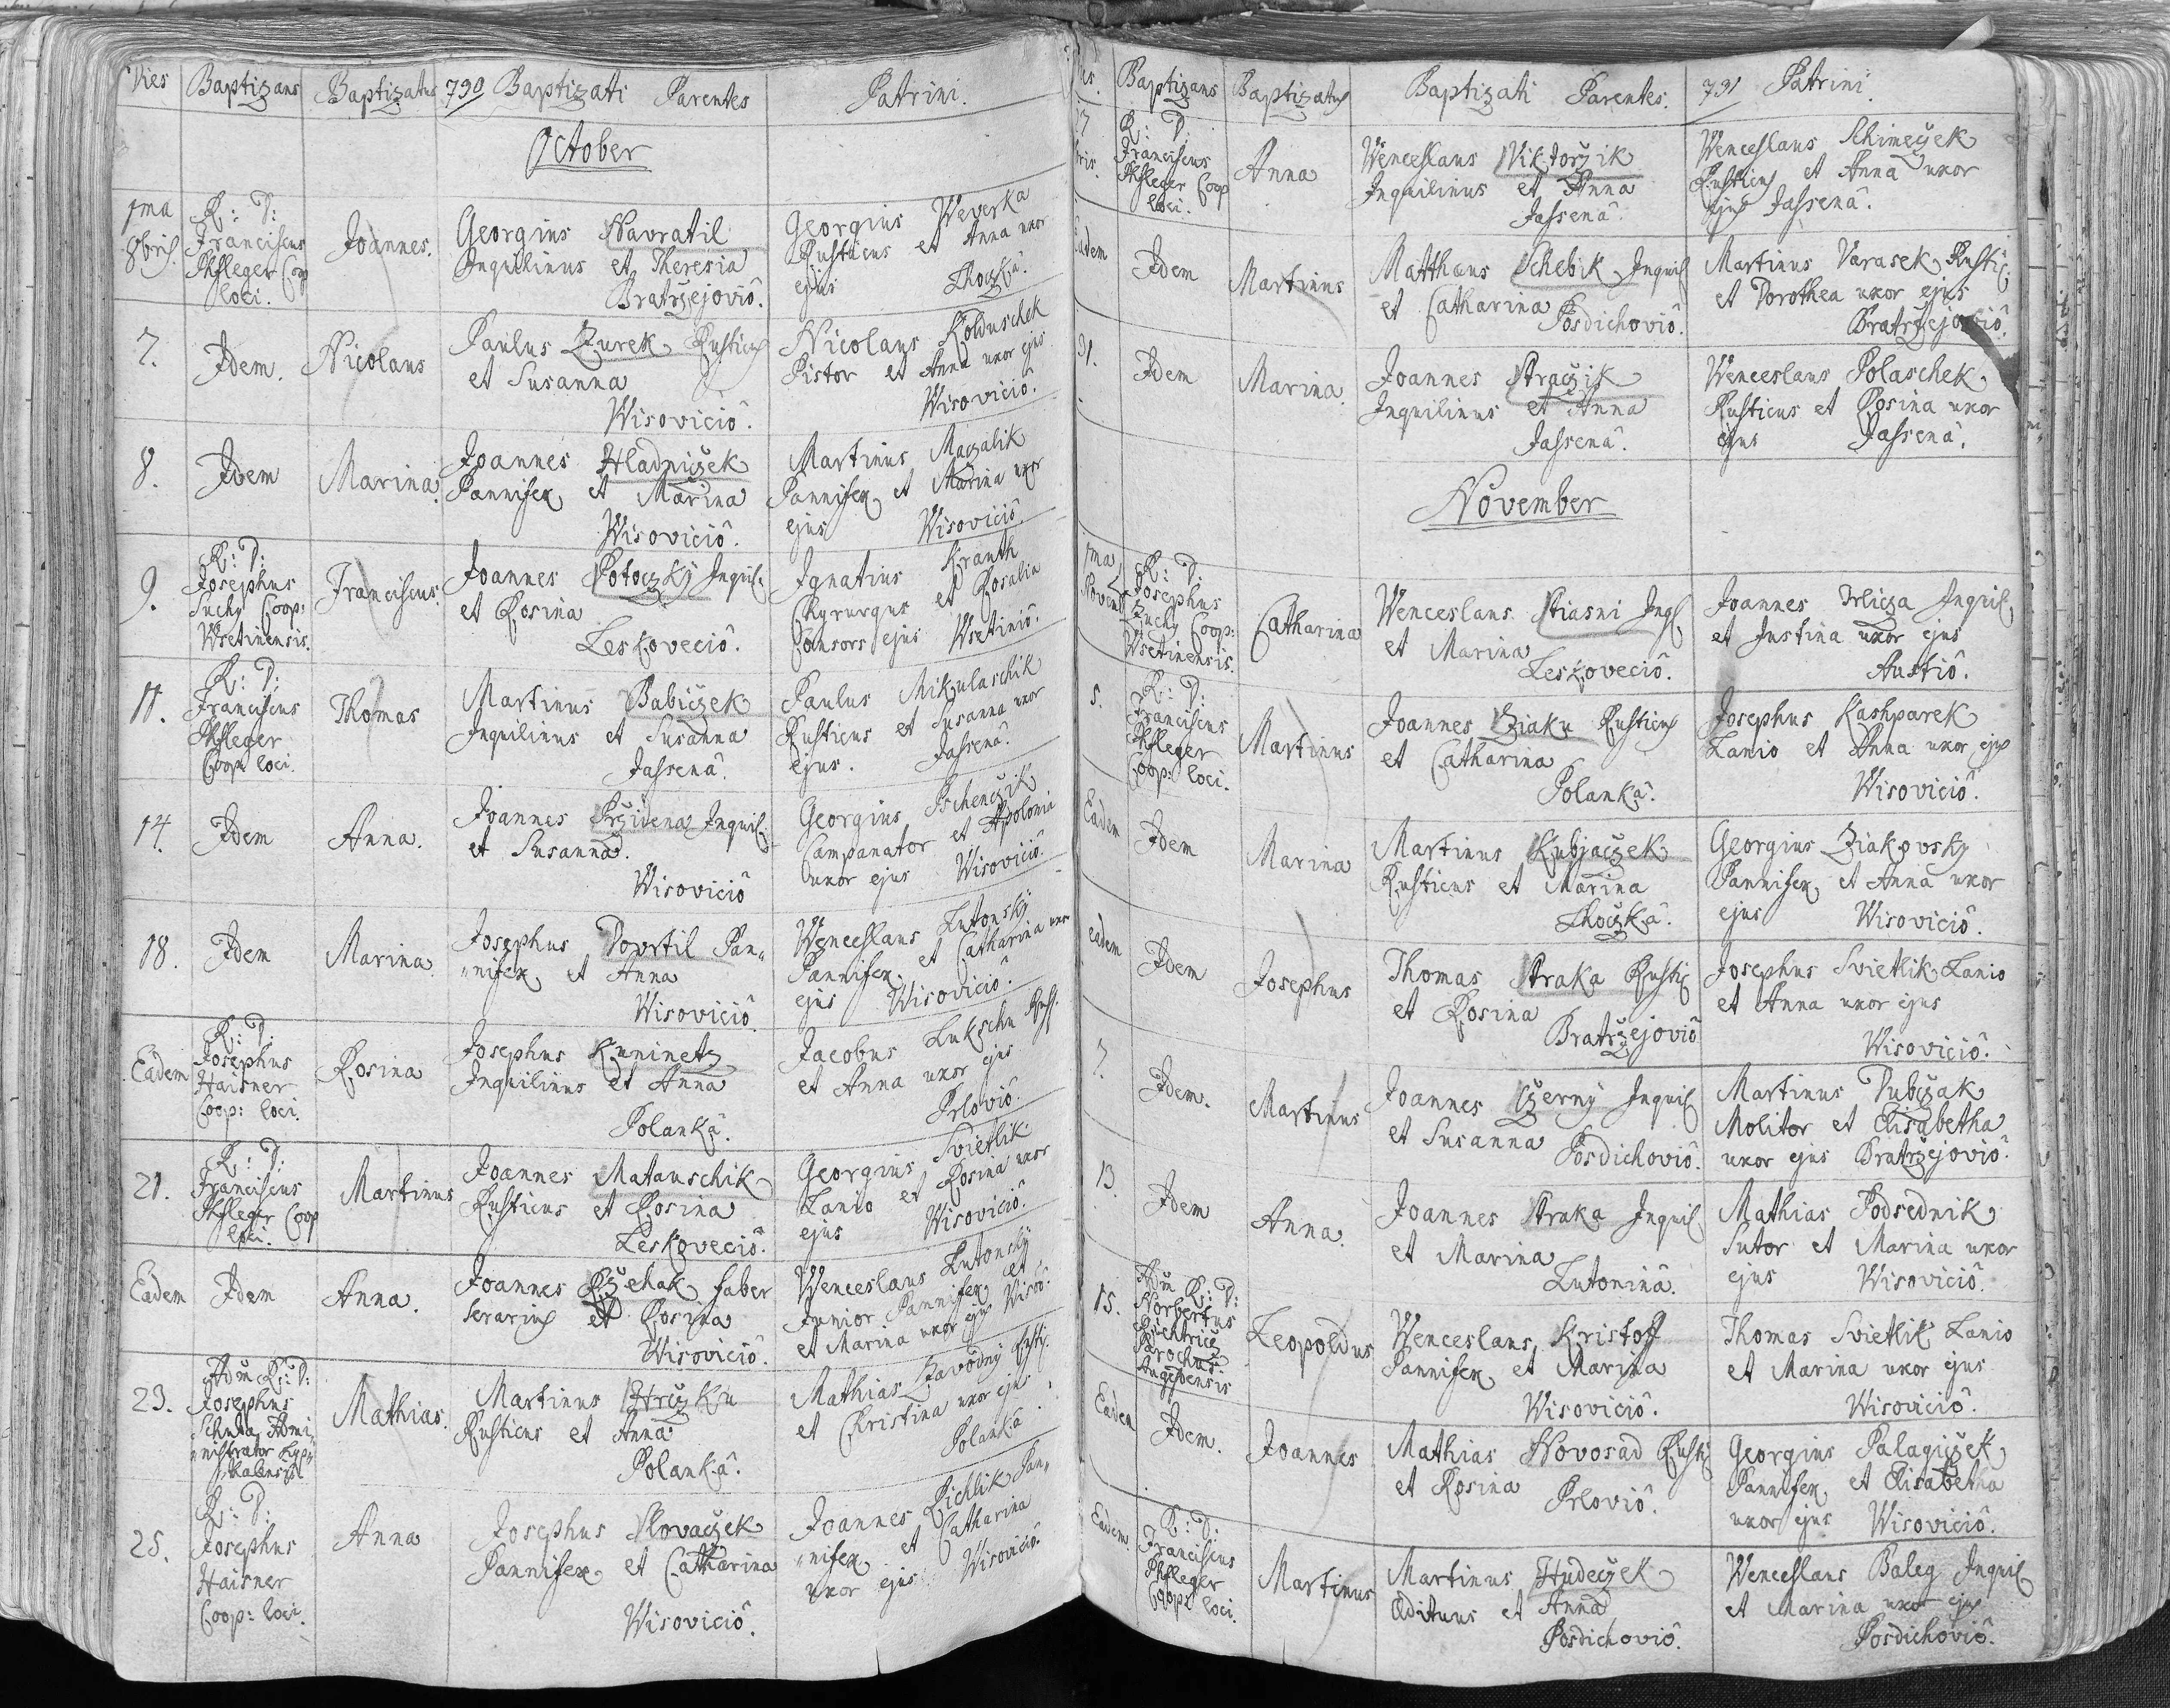 Dies Baptizans Baptizatus 730 Baptizati Parentes Patrini.
October
1ma
8bris.
R: D:
Franciscus
Pfleger Coop
loci.
Joannes.
Georgius Navratil
Inquilinus et Theresia
Bratrzejoviô.
Georgius Weverka
Rusticus et Anna uxor
ejus Lhoczkâ.
7.
Idem.
Nicolaus
Paulus Zurek Rusticus
et Susanna
Wisoviciô.
Nicolaus Kolduschek
Pistor et Anna uxor ejus
Wisoviciô.
8.
Idem
Marina.
Joannes Hladniczek
Pannifex et Marina
Wisoviciô.
Martinus Maczalik
Pannifex et Marina uxor
ejus Wisoviciô.
9.
R: D:
Josephus
Suchy Coop:
Wsetinensis.
Franciscus.
Joannes Potoczky Inquil.
et Rosina
Leskoveciô.
Ignatius Kranth
Chyrurgus et Rosalia
Consors ejus Wsetiniô.
11.
R: D:
Franciscus
Pfleger
Coop: loci.
Thomas
Martinus Babiczek
Inquilinus et Susanna
Jassenâ.
Paulus Mikulaschik
Rusticus et Susanna uxor
ejus. Jassenâ.
14.
Idem
Anna.
Joannes Przidena Inquil.
et Susanna.
Wisoviciô
Georgius Pschenczik
Campanator et Apolonia
uxor ejus Wisoviciô.
18.
Idem
Marina.
Josephus Dovrtil Pan„
„nifex et Anna
Wisoviciô
Wenceslaus Lutonsky
Pannifex et Catharina uxor
ejus Wisoviciô.
Eadem
R: D:
Josephus
Haisner
Coop: loci.
Rosina
Josephus Kuninetz
Inquilinus et Anna
Polankâ.
Jacobus Lukschu Rust.
et Anna uxor ejus
Prloviô.
21.
R: D:
Franciscus
Pfleger Coop
loci.
Martinus
Joannes Matauschik
Rusticus et Rosina
Leskoveciô.
Georgius Svietlik
Lanio et Rosina uxor
ejus Wisoviciô.
Eadem
Idem
Anna.
Joannes Rzehak faber
serarius et Rosina
Wisoviciô.
Wenceslaus Lutonsky
Junior Pannifex et
et Marina uxor ejus Wisov.
23.
Adm R: D:
Josephus
Schuta Admi„
„nistrator
Mathias.
Martinus Hrczku
Rusticus et Anna
Polankâ.
Mathias Zavodny Rusti.
et Christina uxor ejus
Polankâ
25.
R: D:
Josephus
Haisner
Coop: loci.
Anna
Josephus Slovaczek
Pannifex et Catharina
Wisoviciô.
Joannes Pichlik Pan„
„nifex et Catharina
uxor ejus Wisoviciô.
Baptizans Baptizatus Baptizati Parentes. 731 Patrini
R: D:
Franciscus
Pfleger Coop
loci.
Anna
Wenceslaus Viktorzik
Inquilinus et Anna
Jassenâ.
Wenceslaus Schimeczek
Rusticus et Anna uxor
ejus Jassenâ.
Eadem
Idem
Martinus
Matthaus Schebik Inquil
et Catharina
Posdichoviô.
Martinus Varasek Rustic
et Dorothea uxor ejus
Bratrzejoviô.
31.
Idem
Marina.
Joannes Straczik
Inquilinus et Anna
Jassenâ.
Wenceslaus Polaschek
Rusticus et Rosina uxor
ejus Jassenâ.
November
1ma
Novemb
R: D:
Josephus
Zuchy Coop:
Wsetinensis.
Catharina
Wenceslaus Stiasni Inql
et Marina
Leskoveciô.
Joannes Trlicza Inquil
et Justina uxor ejus
Austiô.
5.
R: D:
Franciscus
Pfleger
Coop: loci.
Martinus
Joannes Ziaku Rusticus
et Catharina
Polankâ.
Josephus Kashparek
Lanio et Anna uxor ejus
Wisoviciô.
Eadem
Idem
Marina
Martinus Kubjaczek
Rusticus et Marina
Lhoczkâ.
Georgius Ziakovsky
Pannifex et Anna uxor
ejus Wisoviciô.
eadem
Idem
Josephus
Thomas Straka Rustic
et Rosina
Bratrzejoviô
Josephus Svietlik Lanio
et Anna uxor ejus
Wisoviciô.
7.
Idem.
Martinus
Joannes Czerny Inquil
et Susanna
Posdichoviô.
Martinus Dubczak
Molitor et Elisabetha
uxor ejus Bratrzejoviô.
13.
Idem
Anna.
Joannes Straka Inquil
et Marina
Lutoninâ.
Mathias Podsednik
Sutor et Marina uxor
ejus Wisoviciô.
15.
Adm R: D:
Norbertus
Parochus
Leopoldus
Wenceslaus Kristoff
Pannifex et Marina
Wisoviciô.
Thomas Svietlik Lanio
et Marina uxor ejus
Wisoviciô.
Eadem
Idem.
Joannes
Mathias Novosad Rusti
et Rosina
Prloviô.
Georgius Palagiczek
Pannifex et Elisabetha
uxor ejus Wisoviciô.
Eadem
R: D:
Franciscus
Pfleger
Coop: loci.
Martinus
Martinus Hudeczek
Ædituus et Anna
Posdichoviô.
Wenceslaus Baleg Inquil
et Marina uxor ejus
Posdichoviô.